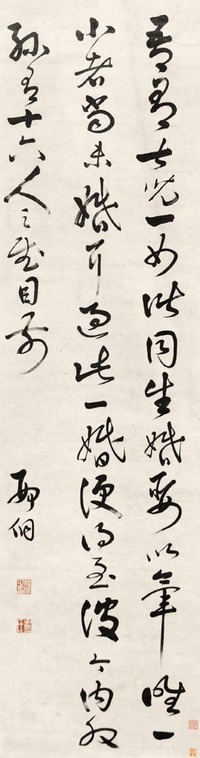 吾有七兒一女皆同生婚娶以畢唯一
小者尚未婚耳過此一婚便得至彼今內外
孫有十六人足慰目前
邢侗